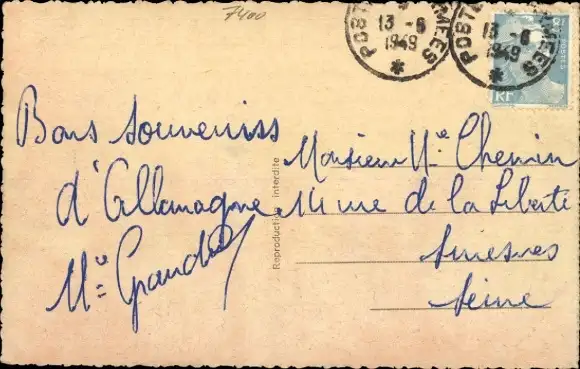 7400
POSTE ARMÉES
13 - 6
1949
POSTE ARMÉES
13 - 6
1949
POSTES
RF
Bons souvenirs
d'Allemagne
Mce
Reproduction interdite
Monsieur Mce Chemin
rue de la Liberté
Suresnes
Seine